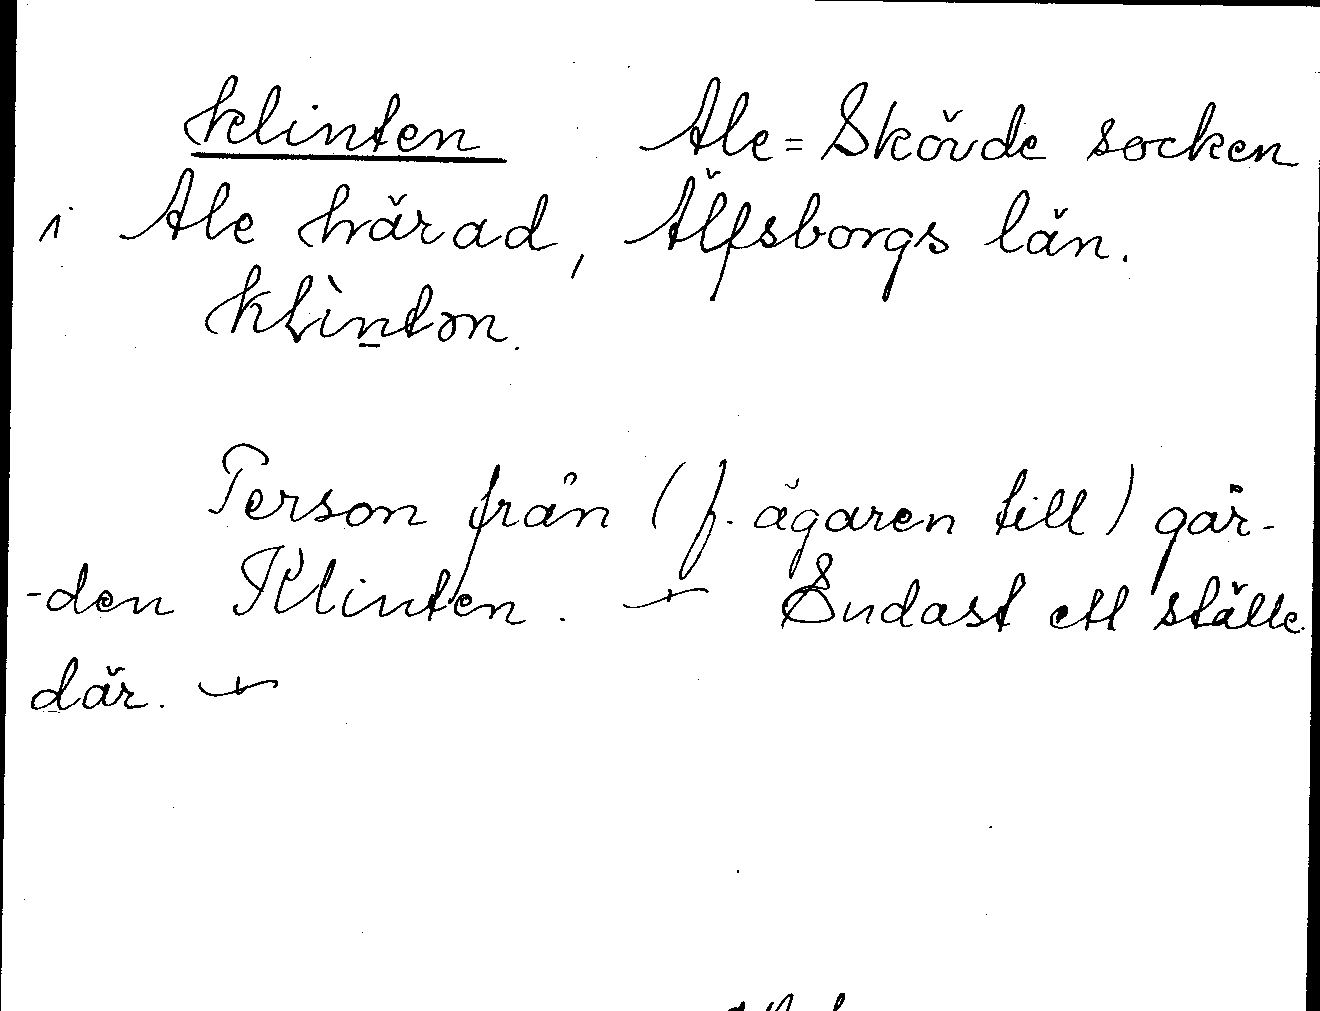 Klinten Ale=Skövde socken
i Ale härad, Älfsborgs län.
klìntən.
Person från (f. ägaren till) går-
-den Klinten. — Endast ett ställe
där. —